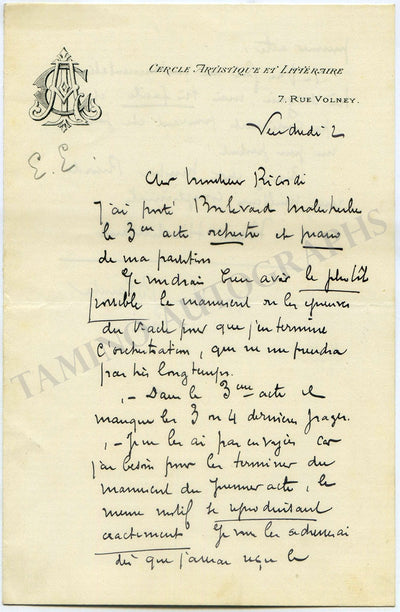 CERCLE ARTISTIQUE ET LITTÉRAIRE
7, RUE VOLNEY.
Vendredi 2
E. E
Cher Monsieur Ricordi
J'ai porté Boulevard Malesherbes
le 3me acte orchestre et piano
de ma partition
Je voudrais bien avoir le plutôt
possible le manuscrit ou les épreuves
du 1er acte pour que j'en termine
l'orchestration, qui ne me prendra
pas très longtemps.
Dans le 3me acte il
manque les 3 ou 4 dernières pages.
Je ne les ai pas envoyées car
j'ai besoin pour les terminer du
manuscrit du premier acte, le
même motif se reproduisant
exactement Je vous les adresserai
dès que j'aurai reçu le
TAMINO AUTOGRAPHS